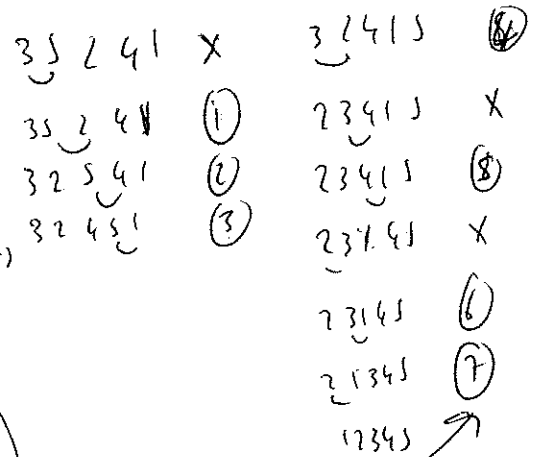 3 5 2 4 1 X
3 5 2 4 1 ①
3 2 5 4 1 ②
3 2 4 5 1 ③
3 2 4 1 5
2 3 4 1 5 X
2 3 4 1 5
2 3 1 4 5 X
2 3 1 4 5 ⑥
2 1 3 4 5 ⑦
1 2 3 4 5